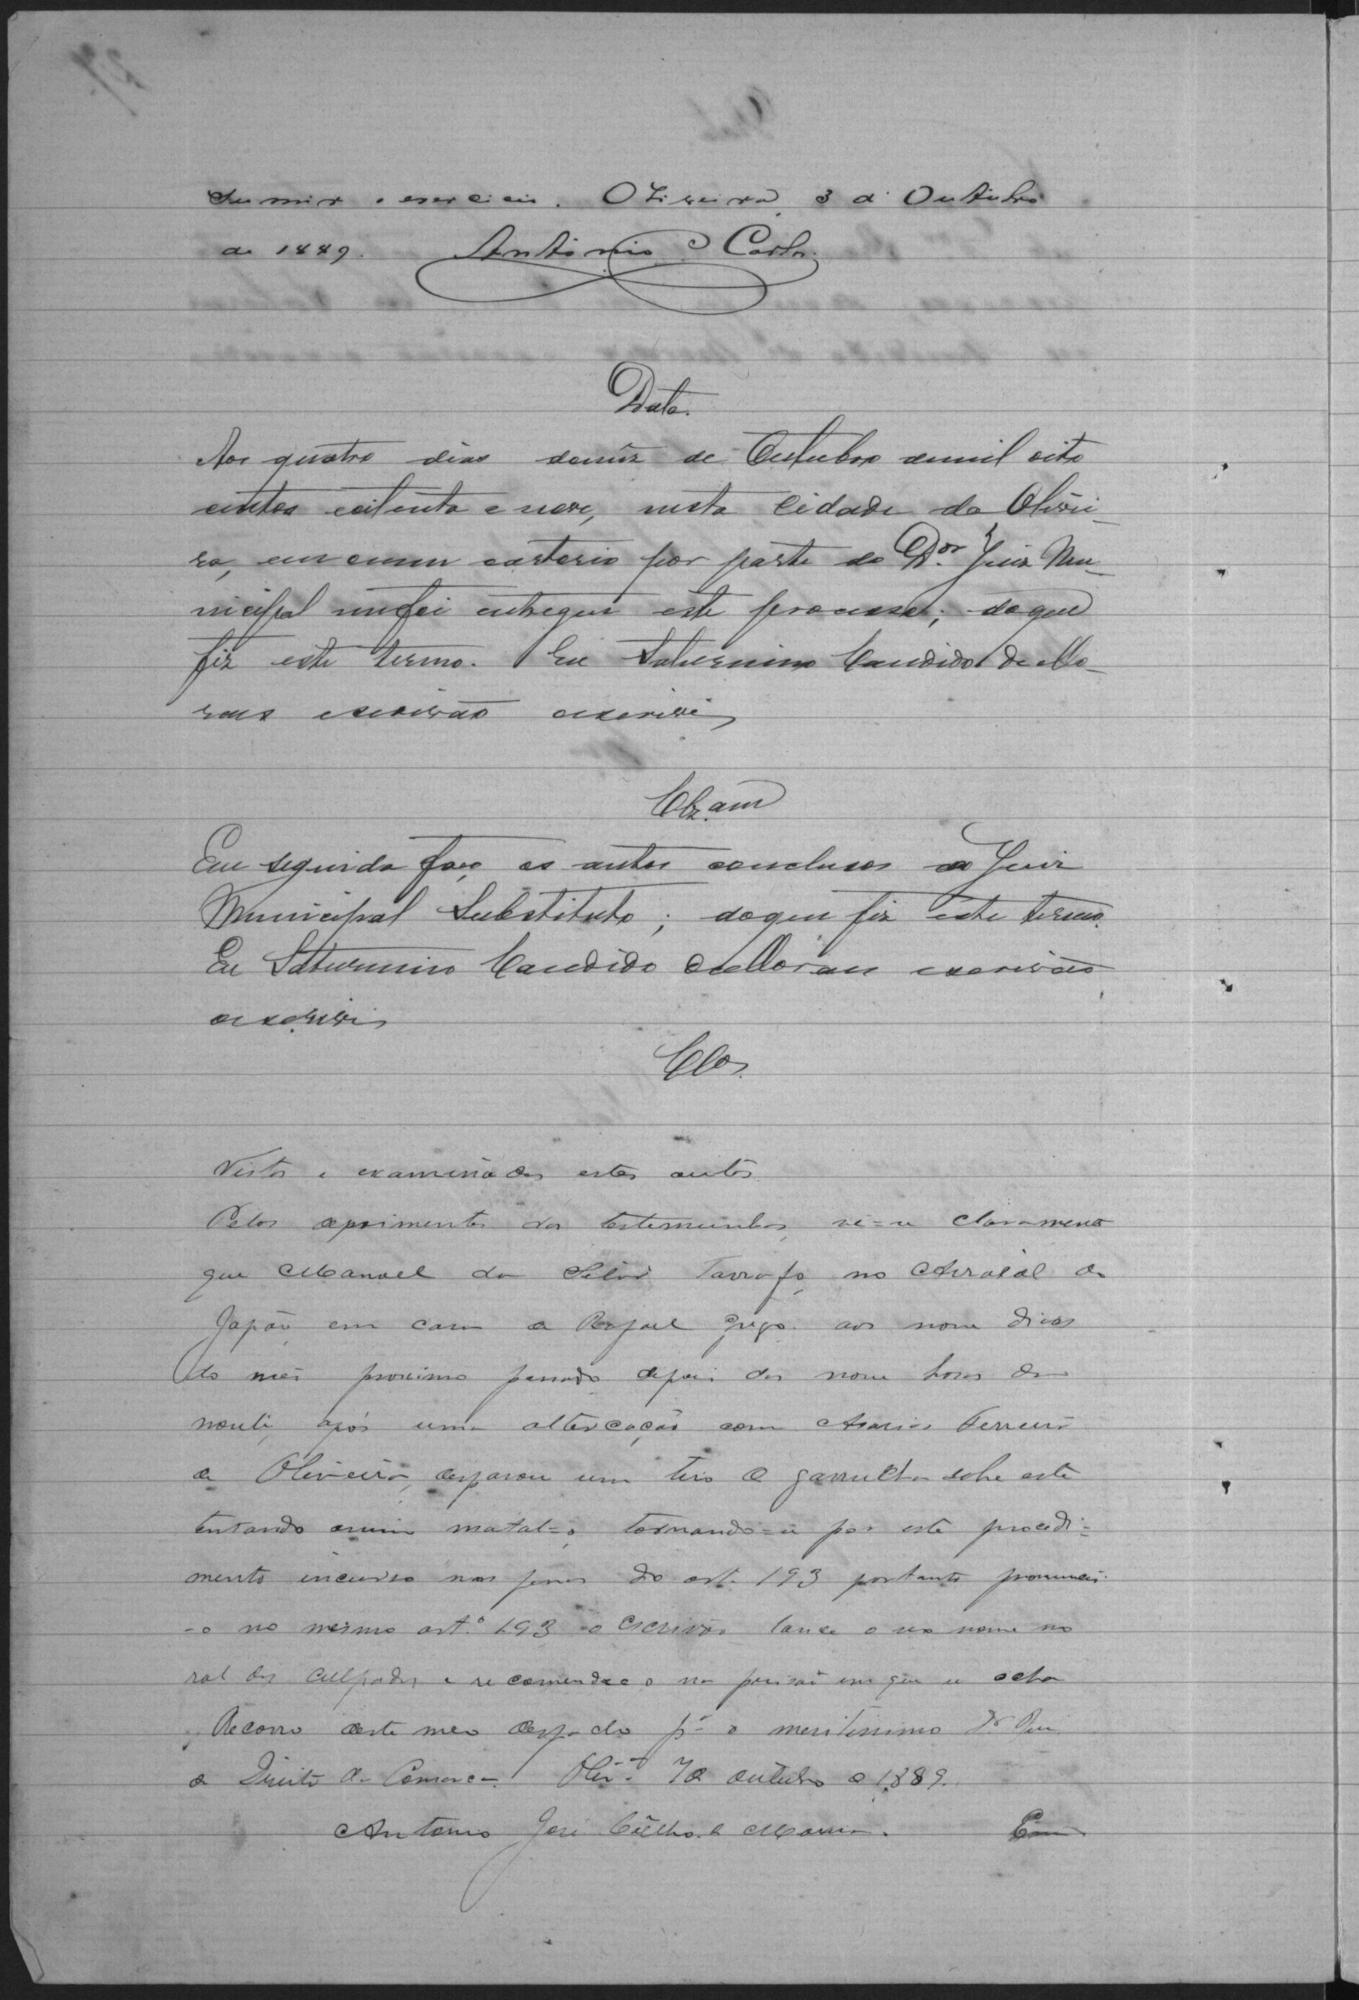 assumir o exercicio. Oliveira, 3 de Outubro
de 1889. Antonio Carlos
Data.
Aos quatro dias domez de Outubro demil oito
centos oitenta e nove, nesta Cidade da Olivei-
ra, em meu cartorio por parte do Dor. Juiz Mu-
nicipal mefoi entregue este processo; doque
fiz este termo. Eu Saturnino Candido de Mo-
raes escrivão escrevi
Clzam
Em seguida faço os autos conclusos ao Juiz
Municipal Substituto; doque fiz este termo.
Eu Saturnino Candido deMoraes escrivão
escrevi
Clos.
Vistos e examinados estes autos
Pelos depoimentos das testemunhas, vê-se claramente
que Manoel da Silva Tarrafa, no Arraial do
Japão, em casa de Rafael Grego aos nove dias
do mês proximo passado, depois das nove horas da
noute, após uma altercação com Ferreira
de Oliveira, desparou um tiro de garrucha sobre este
tentando assim matal-o, tornando-se por este procedi-
mento incurso nas penas do art. 193 portanto pronuncio
-o no mesmo art.º 193 o escrivão lance o seo nome no
rol dos culpados e recomende-o na prisão em que se acha
Recorro deste meo despacho pª o meritissimo Dr Juiz
de Direito da Comarca. Olivª 7 de outubro de 1889.
Antonio José Coêlho de Moura. Em